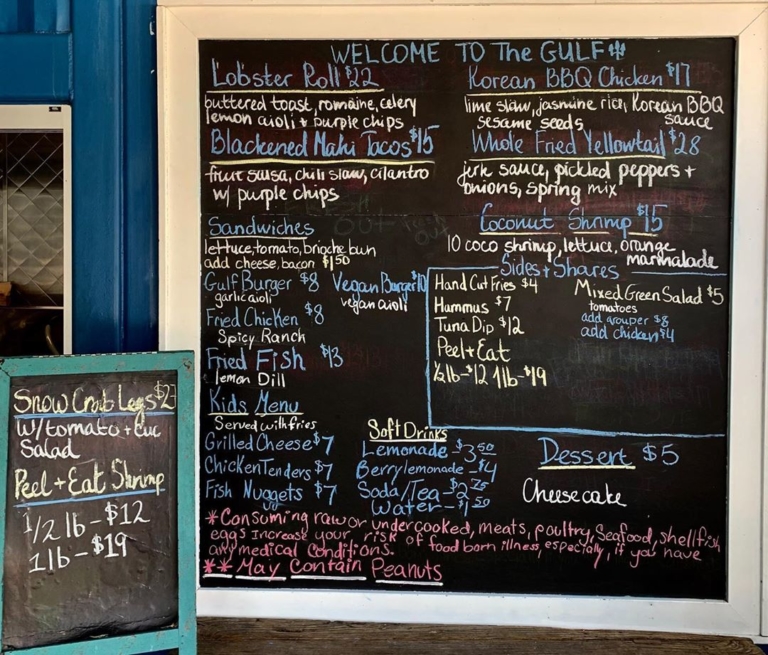 WELCOME TO The GULF
Lobster Roll $22
buttered toast, romaine, celery
lemon aioli + purple chips
Blackened Mahi Tacos $15
fruit salsa, chili slaw, cilantro
w/ purple chips
Korean BBQ Chicken $17
lime slaw, jasmine rice, Korean BBQ
sesame seeds sauce
Whole Fried Yellowtail $28
jerk sauce, pickled peppers +
onions, spring mix
Coconut Shrimp $15
10 coco shrimp, lettuce, orange
marmalade
Sandwiches
lettuce, tomato, brioche bun
add cheese, bacon $1.50
Gulf Burger $8
garlic aioli
Vegan Burger $10
vegan aioli
Fried Chicken $8
Spicy Ranch
Fried Fish $13
lemon Dill
Sides + Shares
Hand Cut Fries $4
Hummus $7
Tuna Dip $12
Peel + Eat
1/2 lb - $12 1 lb - $19
Mixed Green Salad $5
tomatoes
add grouper $8
add chicken $4
Kids Menu
Served with fries
Grilled Cheese $7
Chicken Tenders $7
Fish Nuggets $7
Soft Drinks
Lemonade - $3.50
Berry lemonade - $4
Soda/Tea - $2.75
Water - $1.50
Dessert $5
Cheesecake
*Consuming raw or undercooked, meats, poultry, Seafood, shellfish
eggs increase your risk of food born illness, especially, if you have
any medical conditions.
** May Contain Peanuts
Snow Crab Legs
w/ tomato + cuc
Salad
Peel + Eat Shrimp
1/2 lb - $12
1 lb - $19